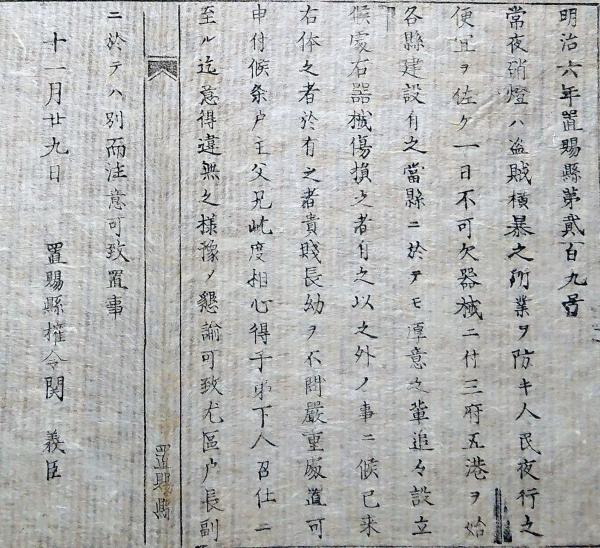 明治六年置賜縣第貳百九号
常夜硝燈ハ盗賊横暴之所業ヲ防キ人民夜行之
便宜ヲ佐ケ一日不可欠器械ニ付三府五港ヲ始
各縣建設有之當縣ニ於テモ厚意之輩追々設立
候處右器械傷損之者有之以之外ノ事ニ候已来
右体之者於有之者貴賤長幼ヲ不問嚴重處置可
申付候条戸主父兄此度相心得子弟下人召仕ニ
至ル迄意得違無之様豫ノ懇諭可致尤區戸長副
置賜縣
ニ於テハ別而注意可致置事
十一月廿九日 置賜縣權令関 義臣